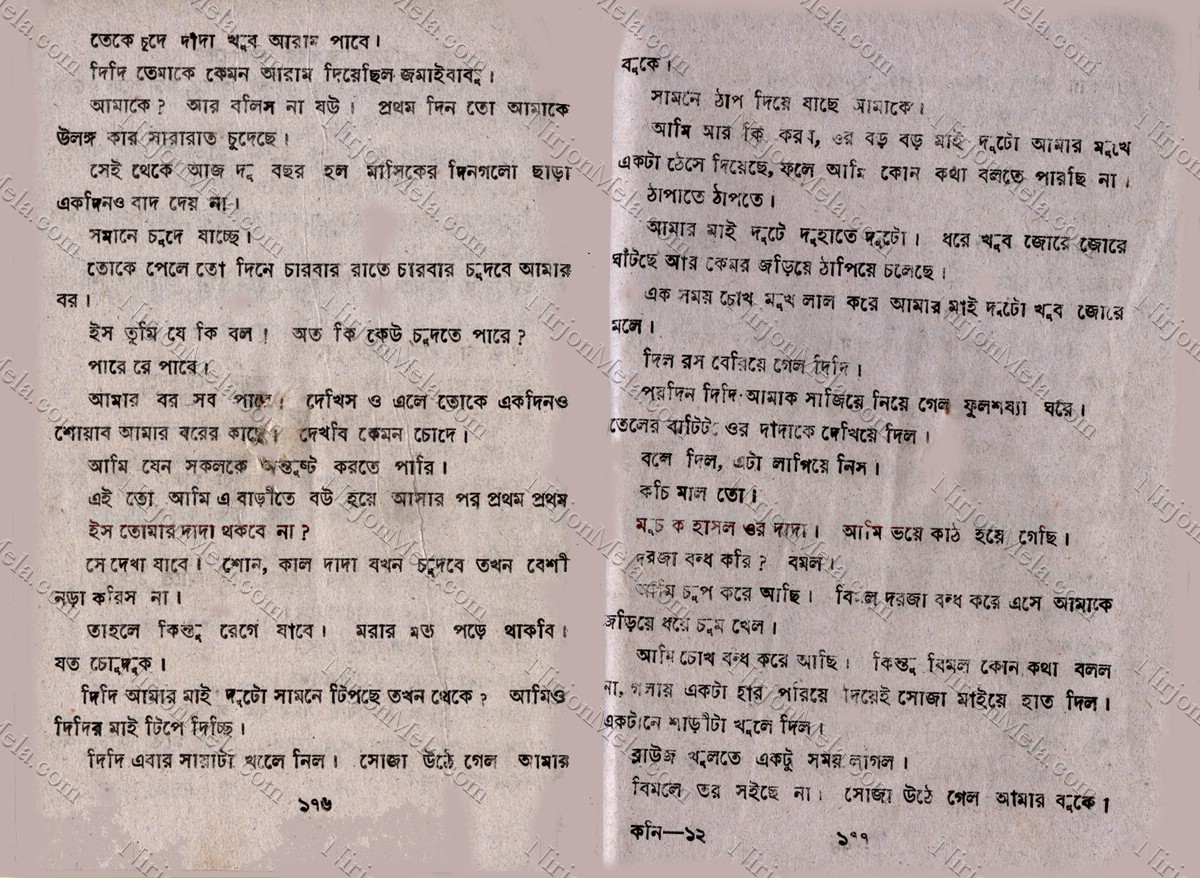 তেকে চুদে দাদা খুব আরাম পাবে।
দিদি তেমাকে কেমন আরাম দিয়েছিল জমাইবাবু।
আমাকে? আর বলিস না বউ। প্রথম দিন তো আমাকে
উলঙ্গ কার সারারাত চুদেছে।
সেই থেকে আজ দু বছর হল মাসিকের দিনগলো ছাড়া
একদিনও বাদ দেয় না।
সমানে চুদে যাচ্ছে।
তোকে পেলে তো দিনে চারবার রাতে চারবার চুদবে আমার
বর।
ইস তুমি যে কি বল! অত কি কেউ চুদতে পারে?
পারে রে পাবে।
আমার বর সব দেখিস ও এলে তোকে একদিনও
শোয়াব আমার বরের দেখবি কেমন চোদে।
আমি যেন সকলকে করতে পারি।
এই তো আমি এ বাড়ীতে বউ হয়ে আসার পর প্রথম প্রথম
ইস তোমার দাদা থকবে না?
সে দেখা যাবে। শোন, কাল দাদা যখন চুদিবে তখন বেশী
নড়া করিস না।
তাহলে কিন্তু রেগে যাবে। মরার মত পড়ে থাকবি।
যত চোদুক।
দিদি আমার মাই দুটো সামনে টিপছে তখন থেকে? আমিও
দিদির মাই টিপে দিচ্ছি।
দিদি এবার সায়াটা খুলে নিল। সোজা উঠে গেল আমার
১৭৬
বুকে।
সামনে ঠাপ দিয়ে যাছে আমাকে।
আমি আর কি করব, ওর বড় বড় মাই দুটো আমার মুখে
একটা ঠেসে দিয়েছে, ফলে আমি কোন কথা বলতে পারছি না।
ঠাপাতে ঠাপতে।
আমার মাই দুটে দুহাতে দুটো। ধরে খুব জোরে জোরে
ঘাঁটছে আর কেমর জড়িয়ে ঠাপিয়ে চলেছে।
এক সময় চোখ মুখ লাল করে আমার মাই দুটো খুব জোরে
মলে।
দিল রস বেরিয়ে গেল দিদি।
পরদিন দিদি আমাক সাজিয়ে নিয়ে গেল ফুলশয্যা ঘরে।
তেলের বাটিট ওর দাদাকে দেখিয়ে দিল।
বলে দিল, এটা লাগিয়ে নিস।
কচি মাল তো।
হাসল ওর দাদা। আমি ভয়ে কাঠ হয়ে গেছি।
দরজা বন্ধ করি? বমল।
আমি চুপ করে আছি। দরজা বন্ধ করে এসে আমাকে
জড়িয়ে ধরে চুম খেল।
আমি চোখ বন্ধ করে আছি। কিন্তু বিমল কোন কথা বলল
না, গলায় একটা হার পরিয়ে দিয়েই সোজা মাইয়ে হাত দিল।
একটানে শাড়ীটা খুলে দিল।
ব্লাউজ খুলতে একটু সময় লাগল।
বিমলে তর সইছে না। সোজা উঠে গেল আমার বুকে।
কনি—১২ ১৭৭